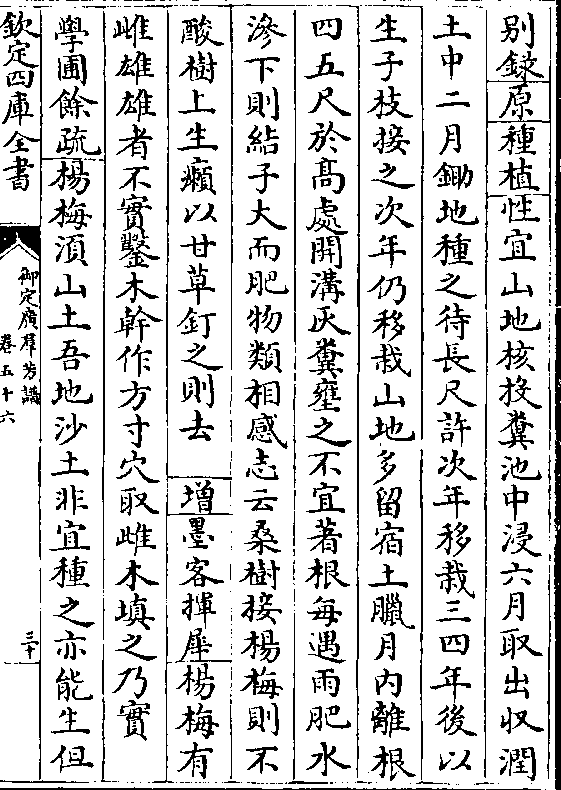 别錄原種植性宜山地核投糞池中浸六月取出收潤
土中二月鋤地種之待長尺許次年移栽三四年後以
生子枝接之次年仍移栽山地多留宿土臘月內離根
四五尺於高處開溝灰糞壅之不宜著根每遇雨肥水
滲下則結子大而肥物類相感志云桑樹接楊梅則不
酸樹上生癩以甘草釘之則去 增墨客揮犀楊梅有
雌雄雄者不實鑿木幹作方寸穴取雌木填之乃實
學圃餘疏楊梅湏山土吾地沙土非宜種之亦能生但
欽定四庫全書
御定廣羣芳譜
卷五十六
三十